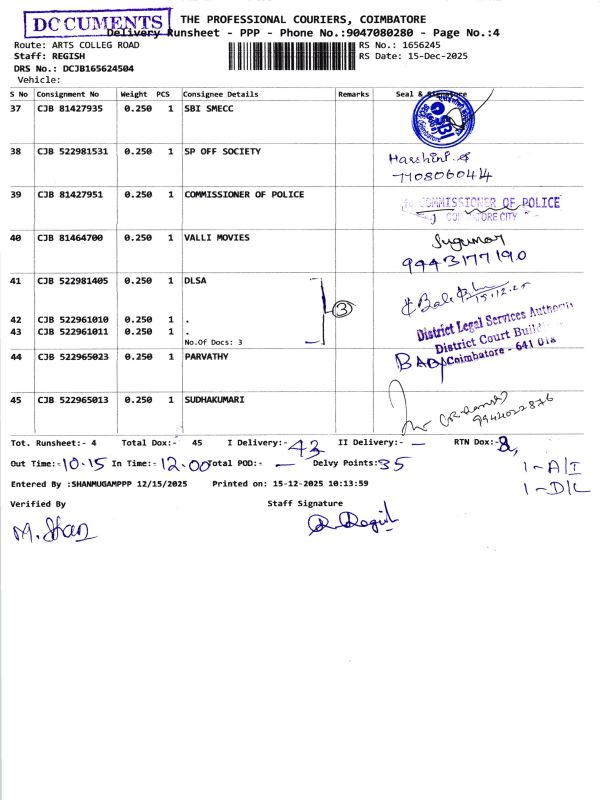 DOCUMENTS
THE PROFESSIONAL COURIERS, COIMBATORE
Delivery Runsheet - PPP - Phone No.:9047080280 - Page No.:4
Route: ARTS COLLEG ROAD
RS No.: 1656245
Staff: REGISH
RS Date: 15-Dec-2025
DRS No.: DCJB165624504
Vehicle:
S No Consignment No Weight PCS Consignee Details Remarks Seal & Signature
37 CJB 81427935 0.250 1 SBI SMECC
38 CJB 522981531 0.250 1 SP OFF SOCIETY
7708060414
39 CJB 81427951 0.250 1 COMMISSIONER OF POLICE
COMMISSIONER OF POLICE
COIMBATORE CITY
40 CJB 81464700 0.250 1 VALLI MOVIES
Sugumar
9943177190
41 CJB 522981405 0.250 1 DLSA
15.12.25
42 CJB 522961010 0.250 1 .
43 CJB 522961011 0.250 1 .
No.Of Docs: 3
3
District Legal Services Authority
District Court Building
Coimbatore - 641 018
44 CJB 522965023 0.250 1 PARVATHY
BABA
45 CJB 522965013 0.250 1 SUDHAKUMARI
9944022876
Tot. Runsheet:- 4 Total Dox:- 45 I Delivery:- 43 II Delivery:- — RTN Dox:- 2
Out Time:- 10.15 In Time:- 12.00 Total POD:- — Delvy Points:35
1-A/I
1-D/L
Entered By :SHANMUGAMPPP 12/15/2025 Printed on: 15-12-2025 10:13:59
Verified By Staff Signature
M.Shan
R.Regish